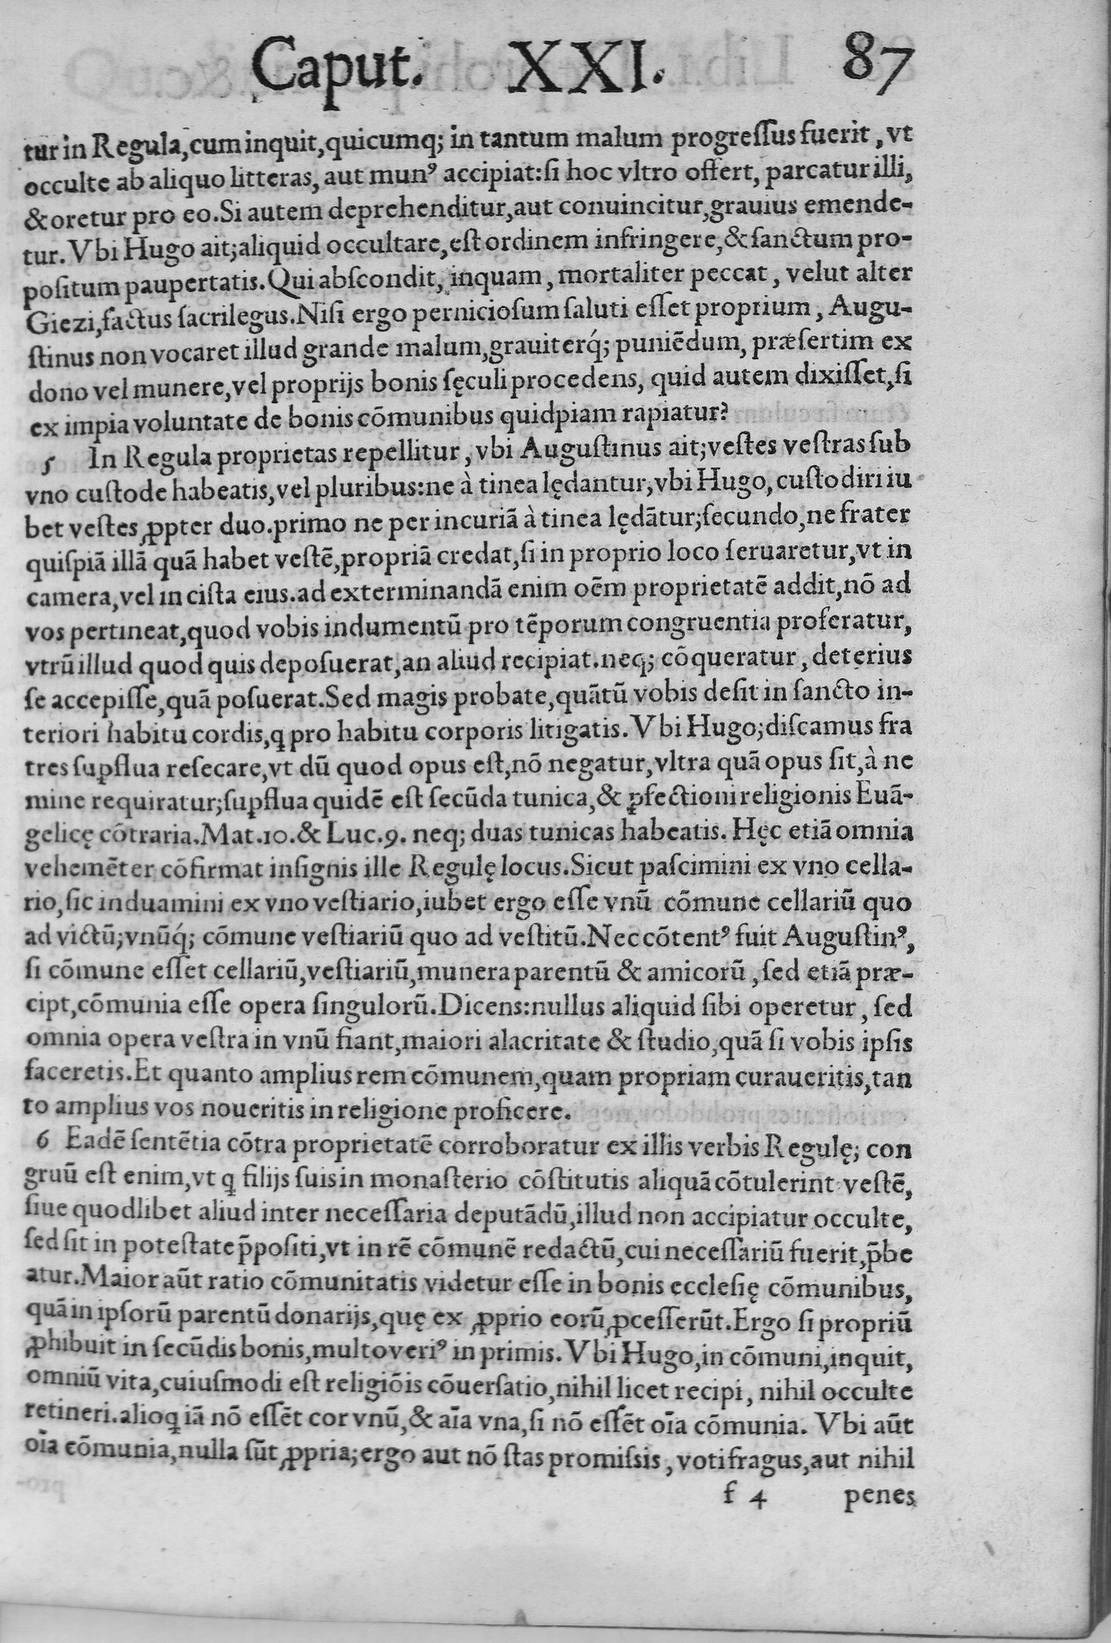 Caput. XXI. 87
tur in Regula, cum inquit, quicumq; in tantum malum progreſſus fuerit, vt
occulte ab aliquo litteras, aut munꝰ accipiat: ſi hoc vltro offert, parcatur illi,
& oretur pro eo. Si autem deprehenditur, aut conuincitur, grauius emende-
tur. Vbi Hugo ait; aliquid occultare, eſt ordinem infringere, & ſanctum pro-
poſitum paupertatis. Qui abſcondit, inquam, mortaliter peccat, velut alter
Giezi, factus ſacrilegus. Niſi ergo pernicioſum ſaluti eſſet proprium, Augu-
ſtinus non vocaret illud grande malum, grauiterq́; puniēdum, præſertim ex
dono vel munere, vel proprijs bonis ſęculi procedens, quid autem dixiſſet, ſi
ex impia voluntate de bonis cōmunibus quidpiam rapiatur?
5 In Regula proprietas repellitur, vbi Auguſtinus ait; veſtes veſtras ſub
vno cuſtode habeatis, vel pluribus: ne à tinea lędantur, vbi Hugo, cuſtodiri iu
bet veſtes, ꝓpter duo. primo ne per incuriā à tinea lędātur; ſecundo, ne frater
quiſpiā illā quā habet veſtē, propriā credat, ſi in proprio loco ſeruaretur, vt in
camera, vel in ciſta eius. ad exterminandā enim oēm proprietatē addit, nō ad
vos pertineat, quod vobis indumentū pro tēporum congruentia proferatur,
vtrū illud quod quis depoſuerat, an aliud recipiat. neq; cōqueratur, deterius
ſe accepiſſe, quā poſuerat. Sed magis probate, quātū vobis deſit in ſancto in-
teriori habitu cordis, q pro habitu corporis litigatis. Vbi Hugo; diſcamus fra
tres ſuꝑflua reſecare, vt dū quod opus eſt, nō negatur, vltra quā opus ſit, à ne
mine requiratur; ſuꝑflua quidē eſt ſecūda tunica, & ꝑfectioni religionis Euā-
gelicę cōtraria. Mat. 10. & Luc. 9. neq; duas tunicas habeatis. Hęc etiā omnia
vehemēter cōfirmat inſignis ille Regulę locus. Sicut paſcimini ex vno cella-
rio, ſic induamini ex vno veſtiario, iubet ergo eſſe vnū cōmune cellariū quo
ad victū; vnūq́; cōmune veſtiariū quo ad veſtitū. Nec cōtentꝰ fuit Auguſtinꝰ,
ſi cōmune eſſet cellariū, veſtiariū, munera parentū & amicorū, ſed etiā præ-
cipt, cōmunia eſſe opera ſingulorū. Dicens: nullus aliquid ſibi operetur, ſed
omnia opera veſtra in vnū fiant, maiori alacritate & ſtudio, quā ſi vobis ipſis
faceretis. Et quanto amplius rem cōmunem, quam propriam curaueritis, tan
to amplius vos noueritis in religione proficere.
6 Eadē ſentētia cōtra proprietatē corroboratur ex illis verbis Regulę; con
gruū eſt enim, vt q filijs ſuis in monaſterio cōſtitutis aliquā cōtulerint veſtē,
ſiue quodlibet aliud inter neceſſaria deputādū, illud non accipiatur occulte,
ſed ſit in poteſtate p̄poſiti, vt in rē cōmunē redactū, cui neceſſariū fuerit, p̄be
atur. Maior aūt ratio cōmunitatis videtur eſſe in bonis eccleſię cōmunibus,
quā in ipſorū parentū donarijs, quę ex ꝓprio eorū ꝓceſſerūt. Ergo ſi propriū
ꝓhibuit in ſecūdis bonis, multo veriꝰ in primis. Vbi Hugo, in cōmuni, inquit,
omniū vita, cuiuſmodi eſt religiōis cōuerſatio, nihil licet recipi, nihil occulte
retineri. alioq iā nō eſſēt cor vnū, & aīa vna, ſi nō eſſēt oīa cōmunia. Vbi aūt
oīa cōmunia, nulla ſūt ꝓpria; ergo aut nō ſtas promiſsis, votifragus, aut nihil
f 4 penes